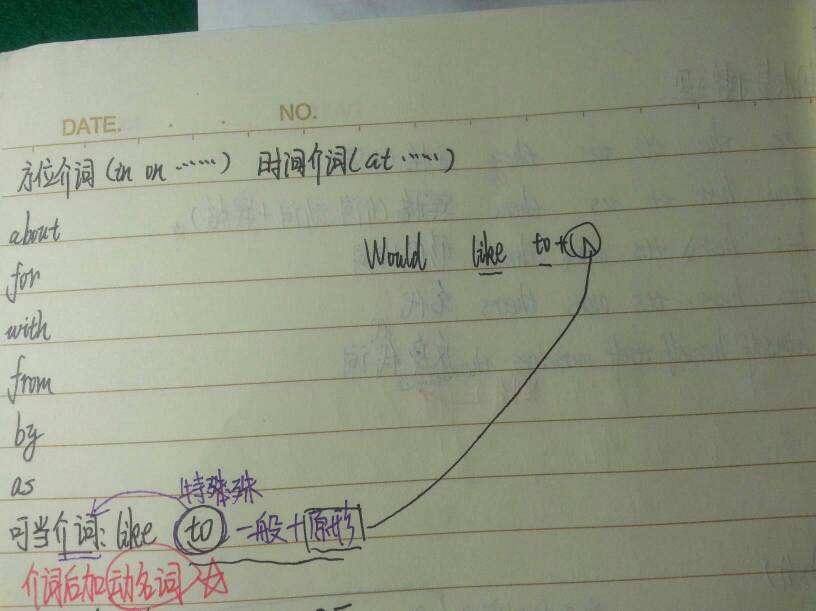 DATE. NO.
方位介词(in on ……) 时间介词(at ……)
about
Would like to +
for
with
from
by
as
特殊
可当介词: like to 一般+原形
介词后加动名词